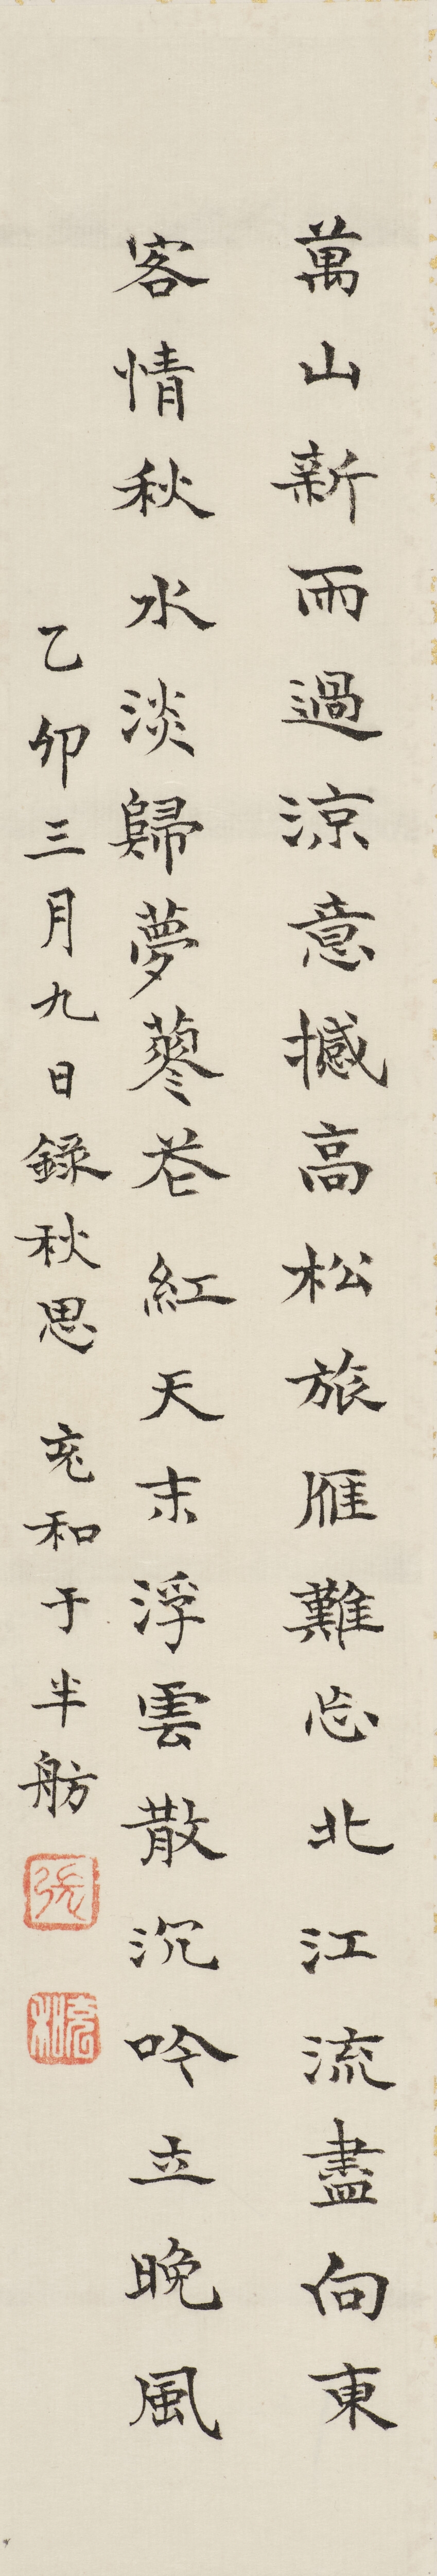 萬山新雨過涼意撼高松旅雁難忘北江流盡向東
客情秋水淡歸夢蓼花紅天末浮雲散沉吟立晚風
乙卯三月九日錄秋思 充和于半舫
張
充和